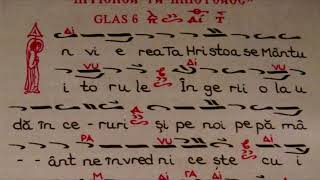 GLAS 6
Δi VU Δi
n vi e rea Ta Hristoa se Mântu
VU
i to ru le În ge rii o la u
dă în ce- ruri și pe noi pe pă mâ
PA VU
- - ânt ne învred ni ce ște cu i
M Δi